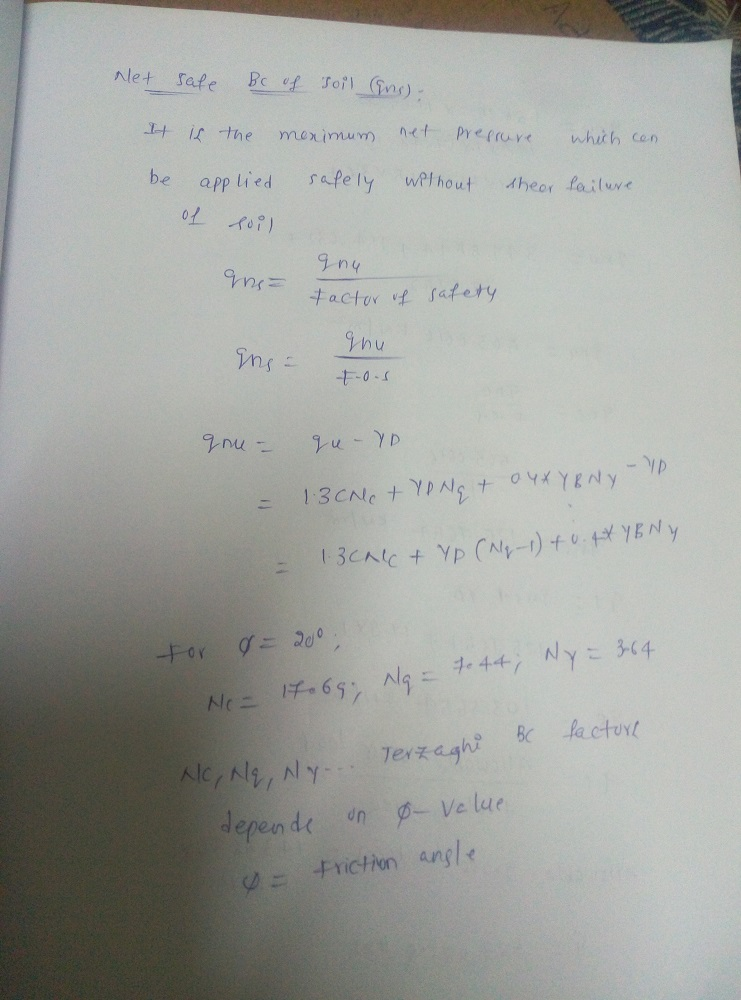 Net safe BC of soil (qns):
It is the maximum net pressure which can
be applied safely without shear failure
of soil
qns = qnu / Factor of safety
qns = qnu / F.O.S
qnu = qu - γD
= 1.3CNc + γDNq + 0.4*γBNγ - γD
= 1.3CNc + γD (Nq-1) + 0.4*γBNγ
For φ = 20°;
Nc = 17.69; Nq = 7.44; Nγ = 3.64
Nc, Nq, Nγ... Terzaghi BC factors
depends on φ-value
φ = Friction angle